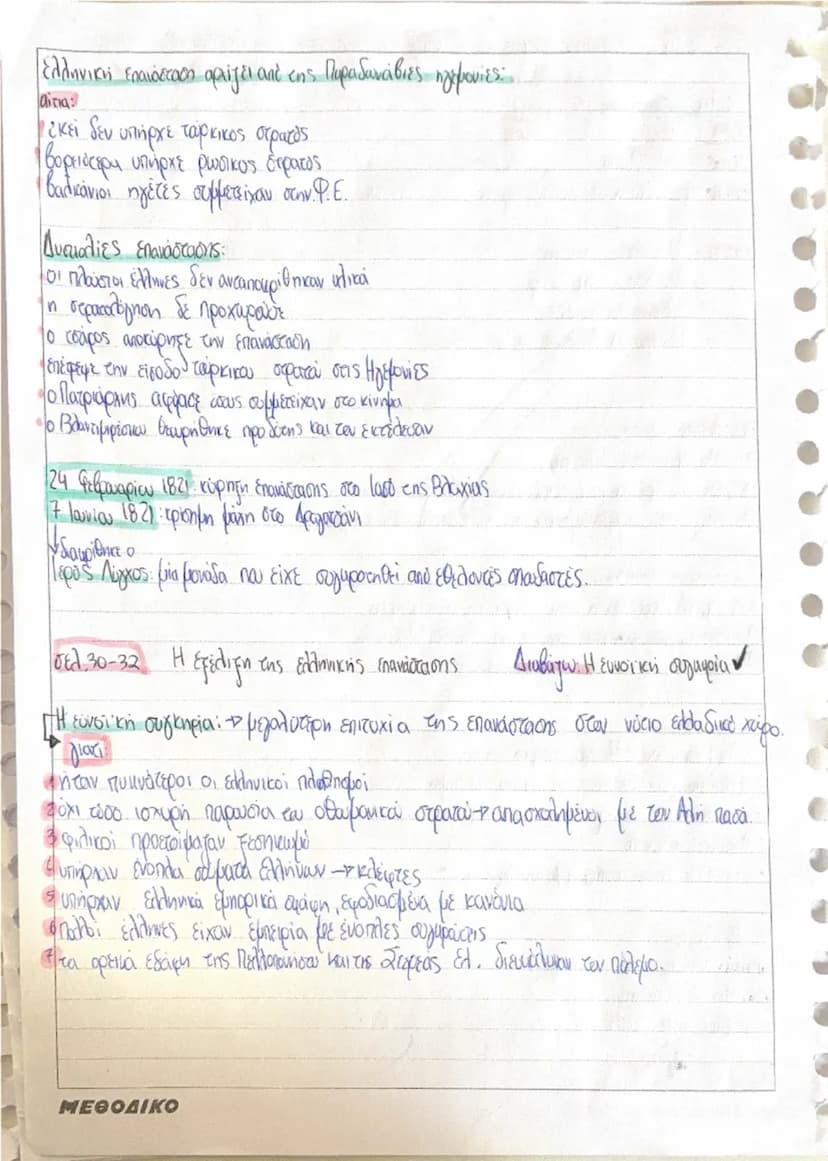 Ελληνική επανάσταση αρχίζει από της Παραδουνάβιες ηγεμονίες:
αίτια:
εκεί δεν υπήρχε τούρκικος στρατός
βορειότερα υπήρχε ρωσικος στρατος
βαλκάνιοι ηγέτες συμμετείχαν στην Φ.Ε.
Δυσκολίες επανάστασης:
οι πλούσιοι έλληνες δεν ανταποκρίθηκαν υλικά
η στρατολόγηση δε προχωρούσε
ο τσάρος αποκύρηξε την επανάσταση
επέτρεψε την είσοδο τούρκικου στρατού στις Ηγεμονίες
ο Πατριάρχης αφόρισε όσους συμμετείχαν στο κίνημα
ο Βλαντιμιρέσκου θεωρήθηκε προδότης και τον εκτέλεσαν
24 Φεβρουαρίου 1821: κύρηξη επανάστασης στο Ιασιο της Βλαχίας
7 Ιουνίου 1821: κρίσιμη μάχη στο Δραγατσάνι
διακρίθηκε ο
Ιερός Λόχος: μία μονάδα που είχε συγκροτηθεί από εθελοντές σπουδαστές.
σελ. 30-32 Η εξέλιξη της ελληνικής επανάστασης Διαβάζω: Η ευνοϊκή συγκυρία ✓
Η ευνοϊκή συγκηρία: → μεγαλύτερη επιτυχία της επανάστασης στον νότιο ελλαδικό χώρο.
γιατί
1 ήταν πυκνότεροι οι ελληνικοί πληθησμοί
2 όχι τόσο ισχυρή παρουσία του οθωμανικού στρατού → απασχολημένοι με τον Αλή πασά.
3 φιλικοί προετοίμαζαν ξεσηκωμό
4 υπήρχαν ένοπλα σώματα ελλήνων → κλέφτες
5 υπήρχαν ελληνικά εμπορικά σκάφη, εφοδιασμένα με κανόνια
6 πολλοί έλληνες είχαν εμπειρία με ένοπλες συγκρούσεις
7 τα ορεινά εδάφη της Πελλοπονήσου και της Στερεάς Ελ. διευκόλυναν τον πόλεμο.
ΜΕΘΟΔΙΚΟ